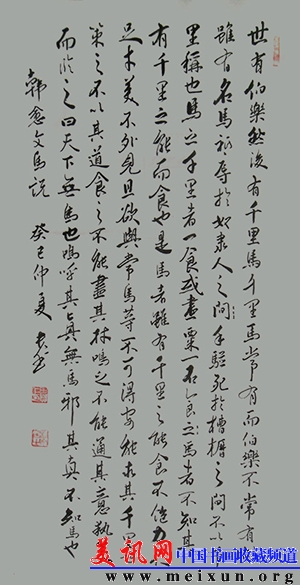 世有伯樂然後有千里馬千里馬常有而伯樂不常有
雖有名馬祇辱於奴隸人之間手駢死於槽櫪之間不以千
里稱也馬之千里者一食或盡粟一石食馬者不知其
有千里之能而食也是馬者雖有千里之能食不飽力不
足才美不外見且欲與常馬等不可得安能求其千里
策之不以其道食之不能盡其材鳴之不能通其意執
而臨之曰天下無馬也嗚呼其真無馬邪其真不知馬也
韓愈文馬說 癸巳仲夏
美讯网 中国书画收藏频道
www.meixun.org.